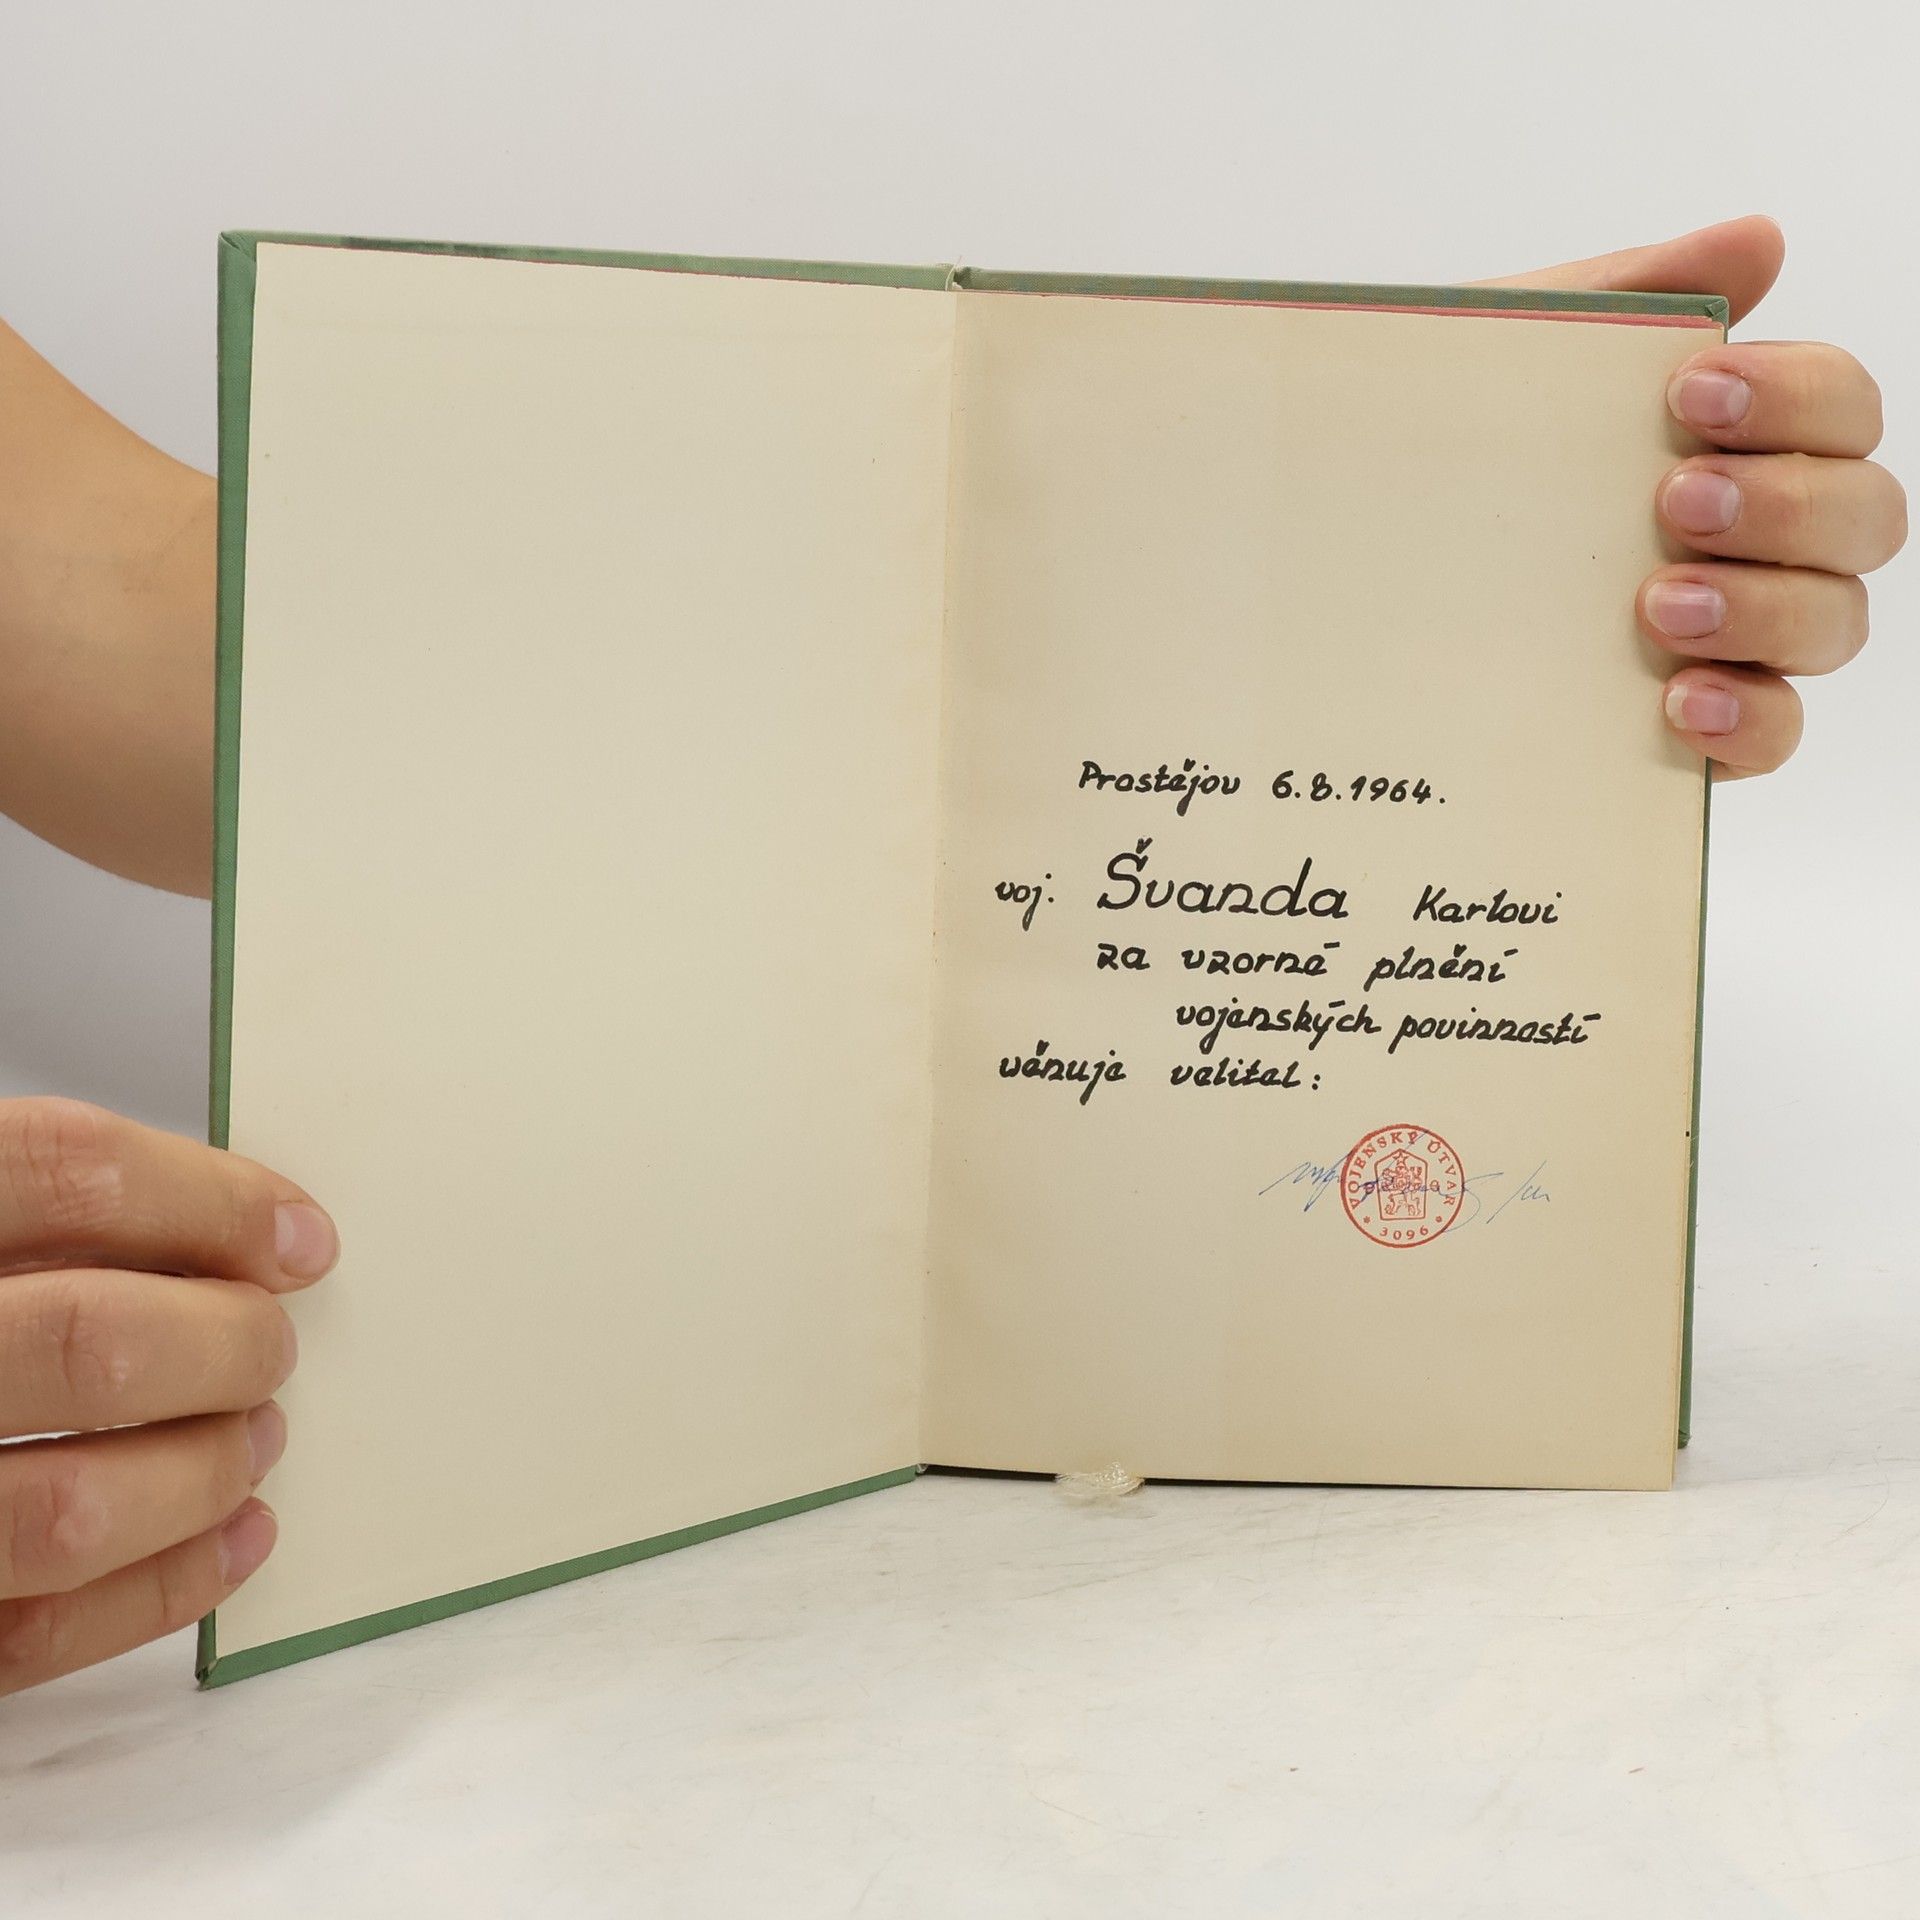 Prostějov 6.8.1964.
voj. Švanda Karlovi
za vzorné plnění
vojenských povinností
věnuje velitel:
VOJENSKÝ ÚTVAR
* 3096 *